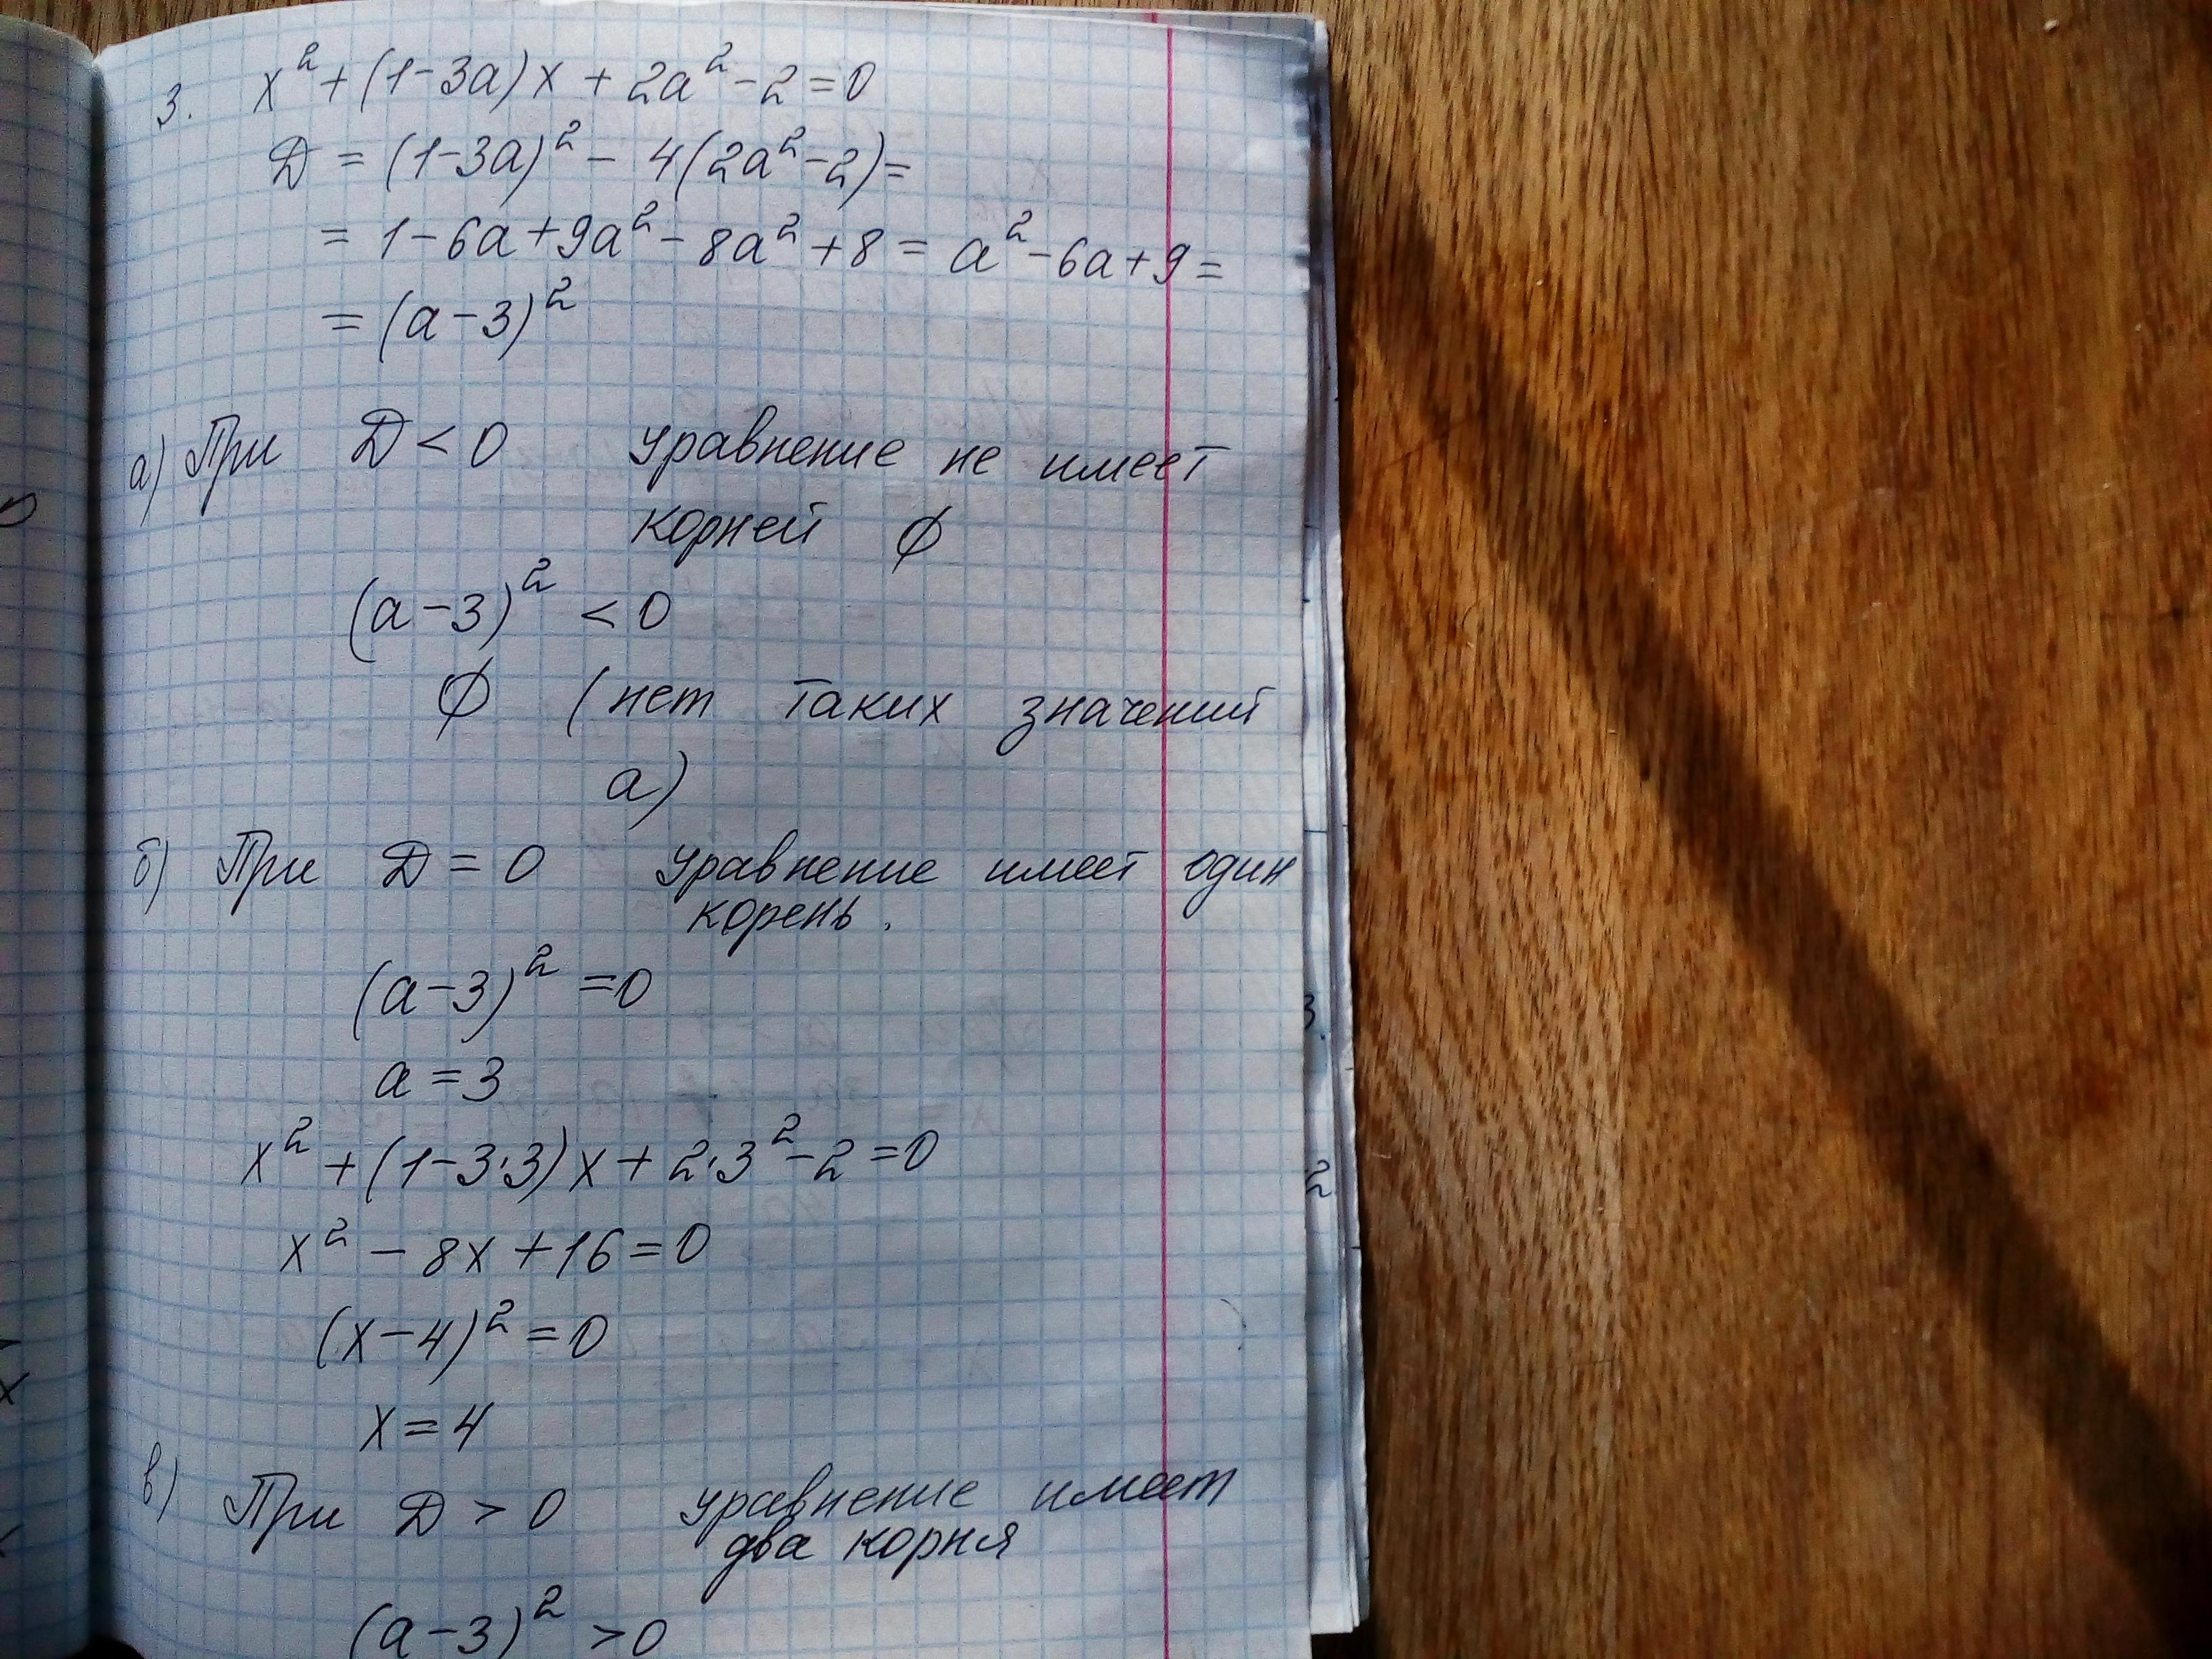 3. x² + (1-3a)x + 2a² - 2 = 0
D = (1-3a)² - 4(2a² - 2) =
= 1 - 6a + 9a² - 8a² + 8 = a² - 6a + 9 =
= (a-3)²
а) При D < 0 уравнение не имеет
корней ∅
(a-3)² < 0
∅ (нет таких значений
a)
б) При D = 0 уравнение имеет один
корень.
(a-3)² = 0
a = 3
x² + (1-3·3)x + 2·3² - 2 = 0
x² - 8x + 16 = 0
(x-4)² = 0
x = 4
в) При D > 0 уравнение имеет
два корня
(a-3)² > 0
3
2
x